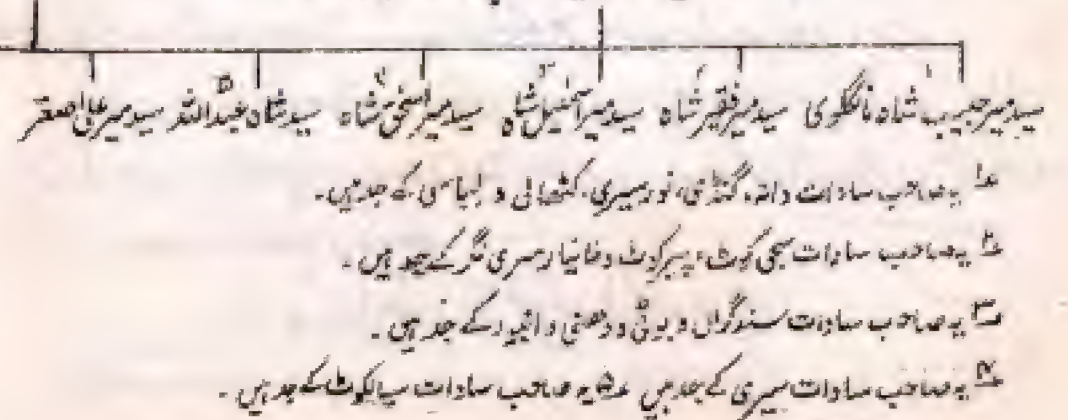 سید میر حبیب شاہ نانگلوی سید میر فقیر شاہ سید میر اسمٰعیل شاہ سید میر اسحٰق شاہ سید شاہ عبداللہ سید میر علی اصغر
۱؎ یہ صاحب سادات داتہ، گنڈی، نور سیری، کٹھائی و لمیاسی کے جد ہیں۔
۲؎ یہ صاحب سادات سچی کوٹ، پیر کوٹ و سری نگر کے جد ہیں۔
۳؎ یہ صاحب سادات سندگراں و و دھنی و کے جد ہیں۔
۴؎ یہ صاحب سادات سیری کے جد ہیں ۵؎ یہ صاحب سادات سیالکوٹ کے جد ہیں۔